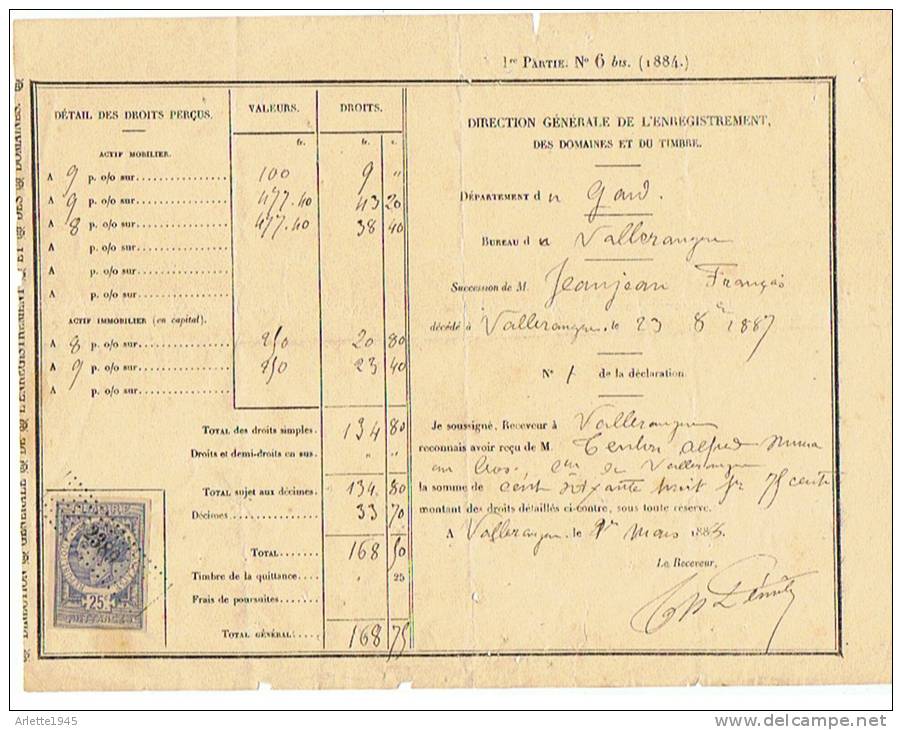 1re PARTIE. No 6 bis. (1884.)
DIRECTION GÉNÉRALE DE L'ENREGISTREMENT ET DES DOMAINES.
DÉTAIL DES DROITS PERÇUS. VALEURS. DROITS.
fr. fr. c.
ACTIF MOBILIER.
A 9 p. o/o sur 100 9 "
A 9 p. o/o sur 477.40 43 20
A 8 p. o/o sur 477.40 38 40
A p. o/o sur
A p. o/o sur
A p. o/o sur
ACTIF IMMOBILIER (en capital).
A 8 p. o/o sur 250 20 80
A 9 p. o/o sur 250 23 40
A p. o/o sur
TOTAL des droits simples. 134 80
Droits et demi-droits en sus. " "
TOTAL sujet aux décimes. 134. 80
Décimes 33 70
TOTAL 168 50
Timbre de la quittance. " 25
Frais de poursuites
TOTAL GÉNÉRAL 168 75
25c
QUITTANCES
DIRECTION GÉNÉRALE DE L'ENREGISTREMENT,
DES DOMAINES ET DU TIMBRE.
DÉPARTEMENT du Gard.
BUREAU de Valleraugue
Succession de M. Jeanjean François
décédé à Valleraugue le 23 8bre 1887
No 1 de la déclaration.
Je soussigné, Receveur à Valleraugue
reconnais avoir reçu de M. alfred
Valleraugue
la somme de cent soixante huit fr 75 cent
montant des droits détaillés ci-contre, sous toute réserve.
A Valleraugue le 1er mars 188
Le Receveur,
Arlette1945
http://www.delcampe.net